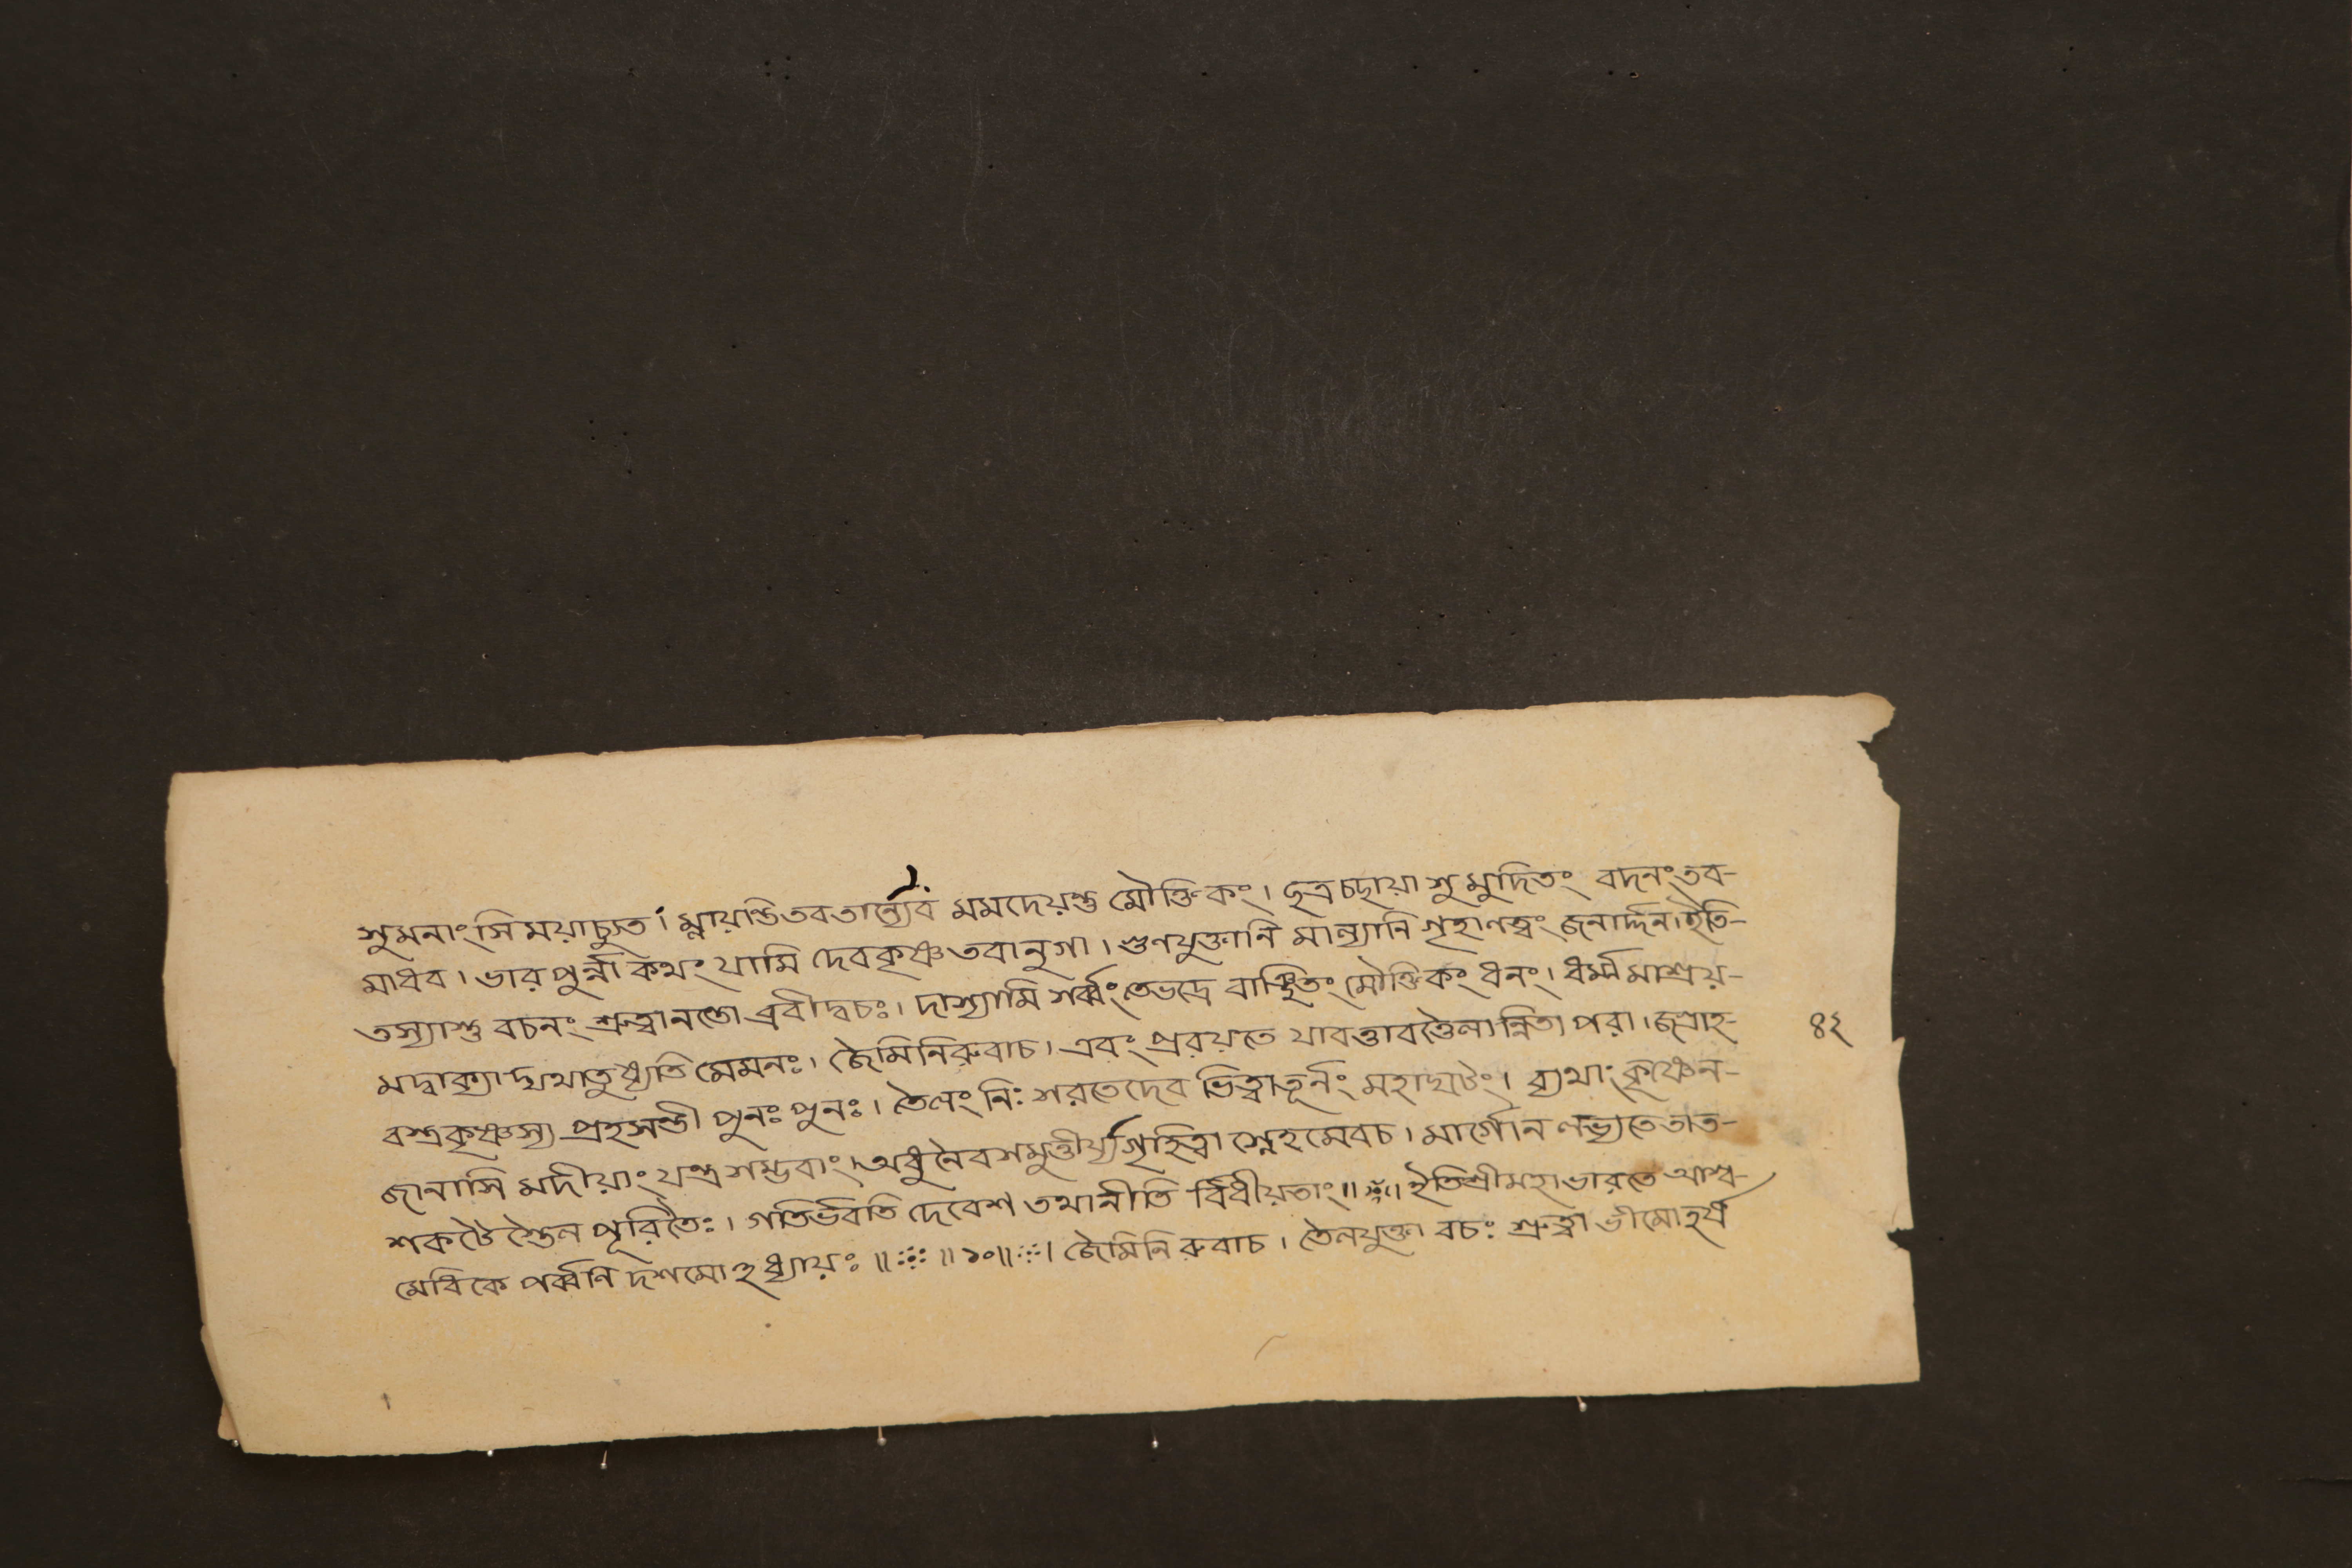 শুমনাংসি ময়াচ্যুত। ম্লায়ন্তিতবতান্যেব মমদেয়ন্তু মৌক্তিকং। ছত্রচছায়া শুমুদিতং বদনংতব-
মাধব। ভারপুর্ন্না কিথং যামি দেবকৃষ্ণ তবানুগা। গুণযুক্তানি মান্যানি গৃহাণত্বং জনার্দ্দন।ইতি-
তস্যাশু বচনং শ্রুত্বানন্তো ব্রবীদ্বচঃ। দাশ্যামি শর্ব্বংতেভদ্রে বাঞ্ছিতং মৌক্তিকং ধনং। ধর্ম্মমাশ্রয়-
মদ্বাক্যাদ্যথাতুষ্যতি মেমনঃ। জৈমিনিরুবাচ। এবং প্ররয়তে যাবত্তাবত্তৈলান্নিতা পরা। জগ্রাহ-
বস্ত্রকৃষ্ণস্য প্রহসন্তী পুনঃ পুনঃ। তৈলং নিঃ শরতেদেব ভিত্বাতূর্নং মহাঘটং। ব্যথাং কৃষ্ণেন-
জানাসি মদীয়াং যন্ত্রশম্ভবাং। অধুনৈবশমুত্তীর্য্যগৃহিত্বা স্নেহমেবচ। মার্গোন লভ্যতেতাত-
শকটৈ স্তৈল পূরিতৈঃ। গতির্ভবতি দেবেশ তথানীতি র্বিধীয়তাং॥ ॥ইতিশ্রীমহাভারতে আশ্ব-
মেধিকে পর্ব্বনি দশমোঽধ্যায়ঃ ॥ ॥১০॥ । জৈমিনি রুবাচ। তৈলযুক্তা বচঃ শ্রুত্বা ভীমোহর্ষ
৪২